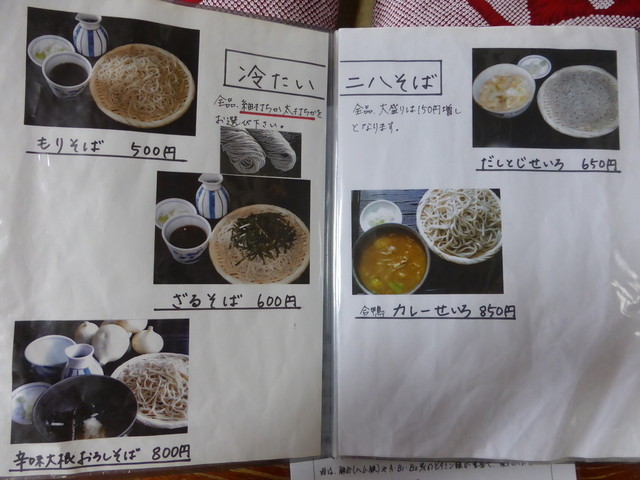 冷たい 二八そば
全品、細打ちか太打ちかを
お選び下さい。
もりそば 500円
ざるそば 600円
辛味大根おろしそば 800円
全品、大盛りは150円増し
となります。
だしとじせいろ 650円
合鴨 カレーせいろ 850円